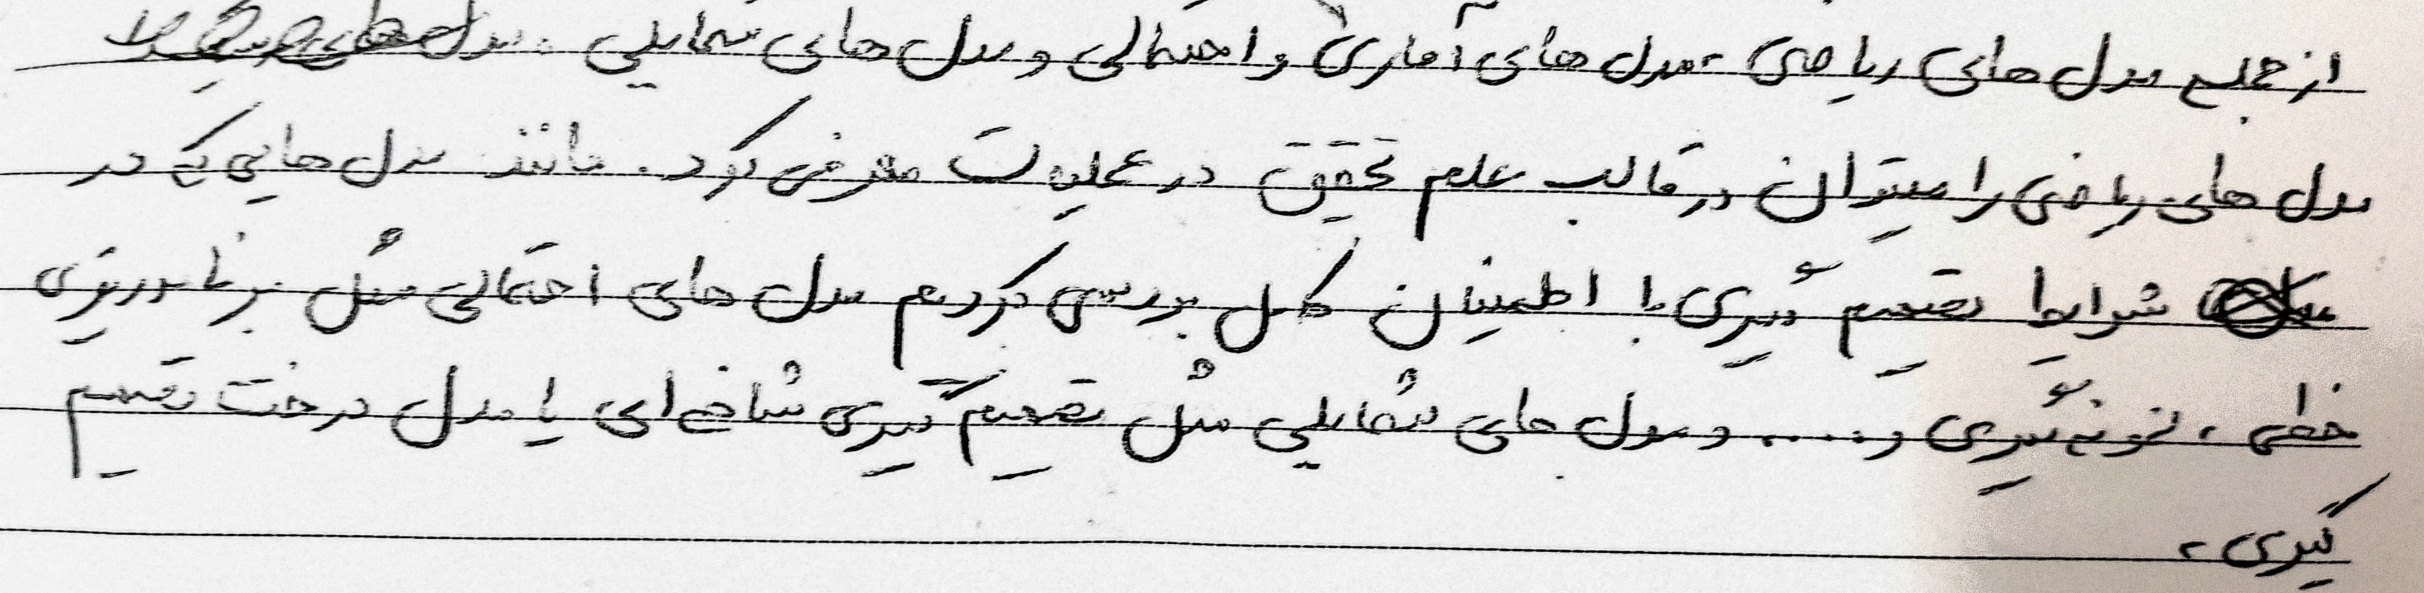 از جمله مدل های ریاضی، مدل های آماری و احتمالی و مدل های شمایلی.
مدل های ریاضی را میتوان در قالب علم تحقیق در عملیات معرفی کرد. مانند مدل هایی که در
شرایط تصمیم گیری با اطمینان کامل بررسی کردیم مدل های احتمالی مثل برنامه ریزی
خطی، نمونه گیری و ..... و مدل های شمایلی مثل تصمیم گیری شاخه ای یا مدل درخت تصمیم
گیری.